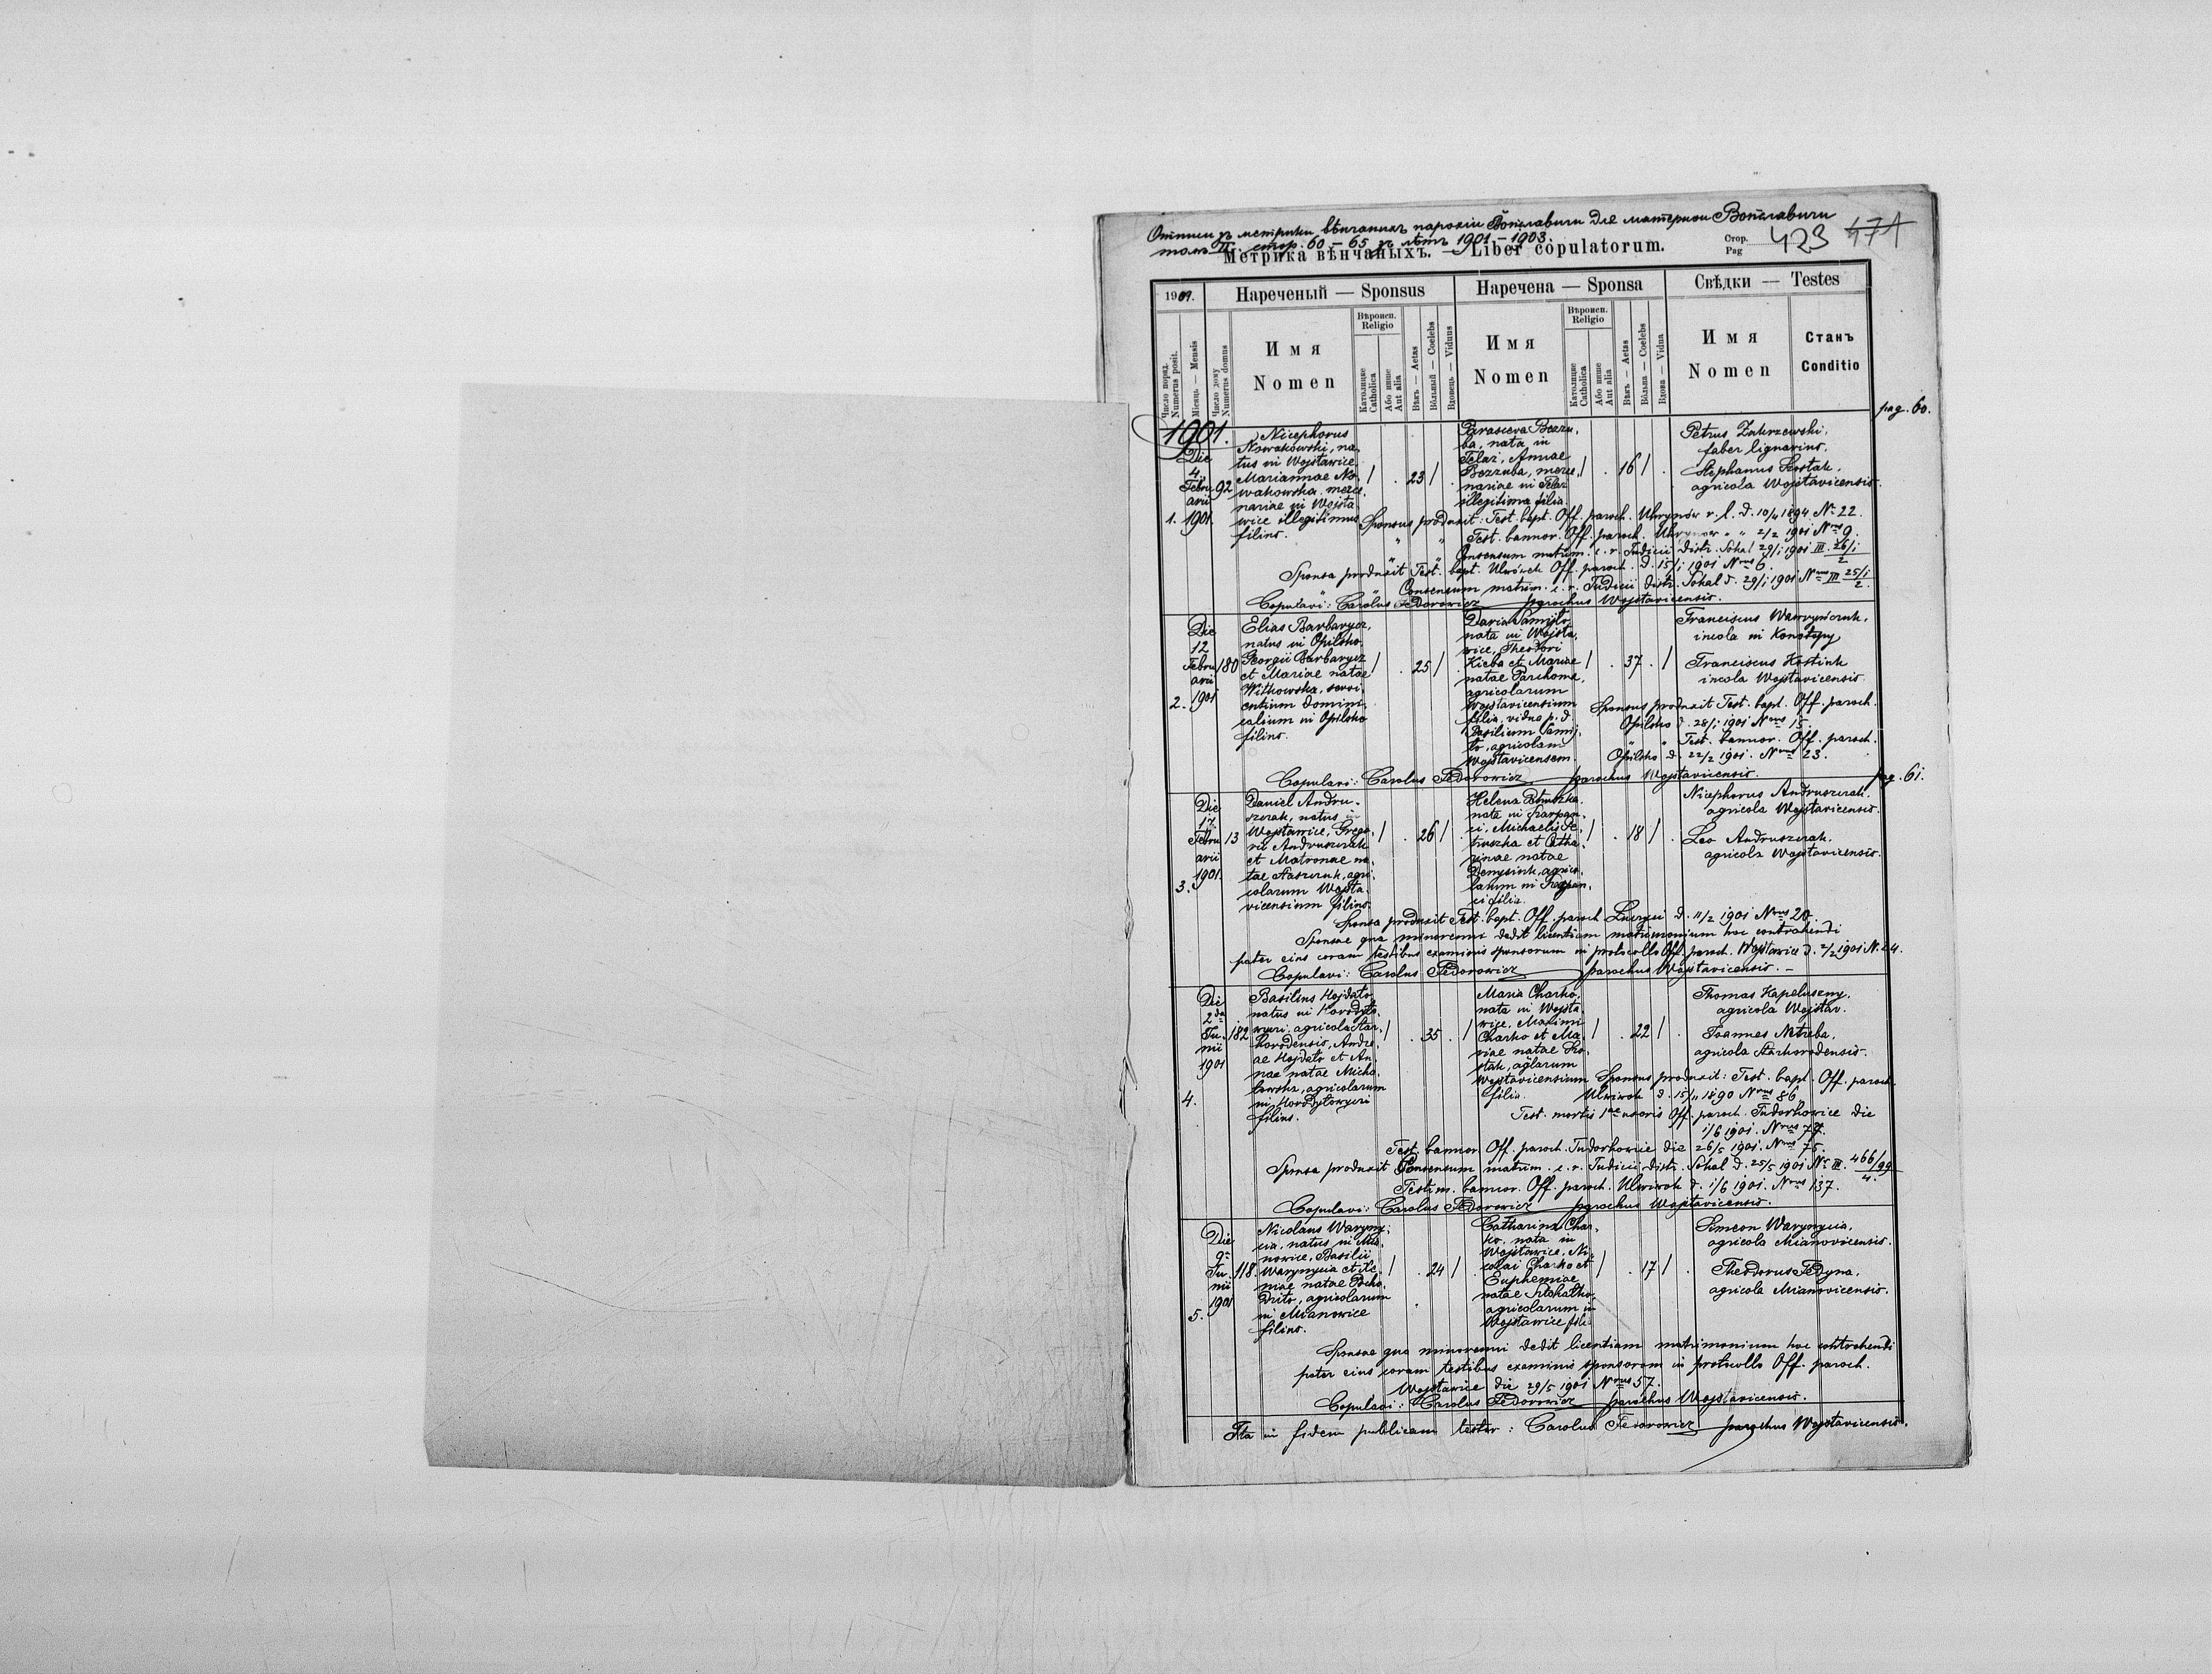 Отписи зъ метрики вѣнчаныхъ парохіи Войславичи для матерной Войславичи
томъ II. стор. 60 – 65 зъ лѣтъ 1901 – 1903.
Метрика вѣнчаныхъ. — Liber copulatorum.
Стор. Pag 423 474
1901. Нареченый — Sponsus Наречена — Sponsa Свѣдки — Testes
Число поряд. Numerus posit.
Мѣсяць — Mensis
Число дому Numerus domus
Имя Nomen
Вѣроисп. Religio
Католицке Catholica
Або инше Aut alia
Вѣкъ — Aetas
Вôльный — Coelebs
Вдовець — Viduus
Имя Nomen
Вѣроисп. Religio
Католицке Catholica
Або инше Aut alia
Вѣкъ — Aetas
Вôльна — Coelebs
Вдова — Vidua
Имя Nomen
Станъ Conditio
pag. 60.
1901.
1.
Die
4.
Febru
arii
1901.
92
Nicephorus
Nowakowski, na-
tus in Wojsławice,
Mariannae No-
wakowska, merce-
nariae in Wojsła-
wice illegitimus
filius.
/ . 23 / .
Parasceva Bezzu-
ba, nata in
Telaż, Annae
Bezzuba, merce-
nariae in Telaż
illegitima filia.
/ . 16 / .
Petrus Zakrzewski,
faber lignarius.
Stephanus Szostak,
agricola Wojstavicensis.
Sponsus produxit: Test. bapt. Off. paroch. Uhrynów r. l. d. 10/11 1894 N. 22.
" " Test. bannor. Off. paroch. Uhrynów " " 2/2 1901 Nrus 9.
" " Consensum matrim. c. r. Judicii distr. Sokal 29/1 1901 III. 26/1 2
Sponsa produxit Test. bapt. Ulwówek Off. paroch. d. 15/1 1901 Nrus 6.
" " Consensum matrim. c. r. Judicii distr. Sokal d. 29/1 1901 Nrus III 25/1 2.
Copulavi: Carolus Fedorowicz parochus Wojstavicensis.
2.
Die
12
Febru
arii
1901
180
Elias Barbarycz,
natus in Opilsko,
Georgii Barbarycz
et Mariae natae
Witkowska, servi-
entium domini-
calium in Opilsko
filius.
/ . 25 / .
Daria Samijło,
nata in Wojsła-
wice, Theodori
Kieba et Mariae
natae Parchoma,
agricolarum
Wojstavicensium
filia, vidua p. d.
Basilium Samij-
ło, agricolam
Wojstavicensem.
/ . 37 . /
Franciscus Wawryńczuk,
incola in Konotopy
Franciscus Kostiuk
incola Wojstavicensis.
Sponsus produxit Test. bapt. Off. paroch.
Opilsko d. 28/1 1901 Nrus 15.
" " Test. bannor. Off. paroch.
Opilsko d. 22/2 1901. Nrus 23.
Copulavi: Carolus Fedorowicz parochus Wojstavicensis.
pag. 61.
3.
Die
17.
Febru
arii
1901.
13
Daniel Andru-
szczak, natus in
Wojsławice, Grego-
rii Andruszczak
et Matronae na-
tae , agri-
colarum Wojsta-
vicensium filius.
/ . 26 / .
Helena Petruszka,
nata in Szarpan-
ci, Michaelis Pe-
truszka et Catha-
rinae natae
Denysiuk, agrico-
larum in Szarpan-
ci filia.
/ . 18 / .
Nicephorus Andruszczak,
agricola Wojstavicensis.
Leo Andruszczak,
agricola Wojstavicensis.
Sponsa produxit Test. bapt. Off. paroch d. 11/2 1901 Nrus 20.
Sponsae qua minorenni dedit licentiam matrimonium hoc contrahendi
pater eius coram testibus examinis sponsorum in protocollo Off. paroch. Wojsławice d. 2/2 1901 N. 24.
Copulavi: Carolus Fedorowicz parochus Wojstavicensis. –
4.
Die
2da
Ju-
nii
1901
182
Basilius Hojdało
natus in Horodyło-
wyczi, agricola Star-
horodensis, Andre-
ae Hojdało et An-
nae natae Micha-
łowska, agricolarum
in Horodyłowyczi
filius.
/ . 35 . /
Maria Charko,
nata in Wojsła-
wice, Maximi
Charko et Ma-
riae natae Szo-
stak, aglarum
Wojstavicensium
filia.
/ . 22 / .
Thomas Kapeluszny,
agricola Wojstav.
Joannes Netreba,
agricola Starhorodensis.
Sponsus produxit: Test. bapt. Off. paroch.
Ulwiwok d. 15/11 1890 Nrus 86
Test. mortis 1ae uxoris Off. paroch. Tudorkowice die
1/6 1901. Nrus 77.
Test. bannor. Off. paroch. Tudorkowice die 26/5 1901. Nrus 75.
Sponsa produxit Consensum matrim. c. r. Judicii distr. Sokal d. 25/5 1901 Nr. III. 466/99 4.
Testim. bannor. Off. paroch. Ulwiwok d. 1/6 1901. Nrus 137.
Copulavi: Carolus Fedorowicz parochus Wojstavicensis.
5.
Die
9a
Ju-
nii
1901
118.
Nicolaus Waryny-
cia, natus in Mia-
nowice, Basilii
Warynycia et Xe-
niae natae
, agricolarum
in Mianowice
filius.
/ . 24 / .
Catharina Char-
ko, nata in
Wojsławice, Ni-
colai Charko et
Euphemiae
natae ,
agricolarum in
Wojsławice filia
/ . 17 / .
Simeon Warynycia,
agricola Mianovicensis.
Theodorus Fedyna,
agricola Mianovicensis.
Sponsae qua minorenni dedit licentiam matrimonium hoc contrahendi
pater eius coram testibus examinis sponsorum in protocollo Off. paroch.
Wojsławice die 29/5 1901 Nrus 57.
Copulavi: Carolus Fedorowicz parochus Wojstavicensis.
Ita in fidem publicam testor: Carolus Fedorowicz parochus Wojstavicensis.